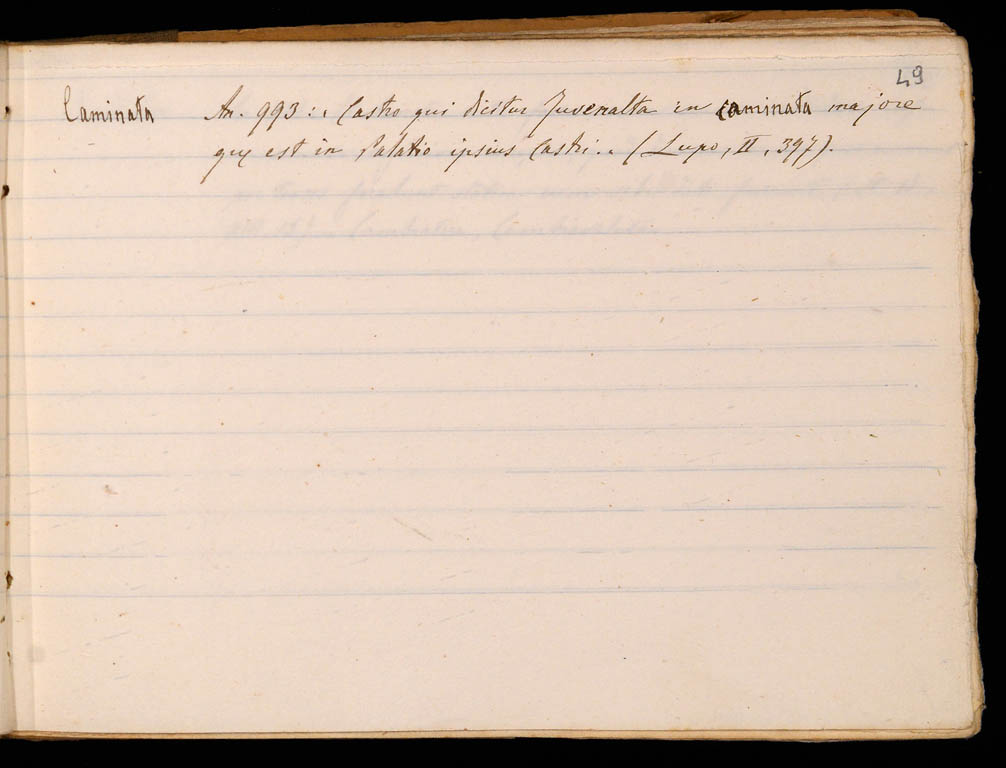 49
Caminata An. 993: „ Castro qui dicitur Juvenalta in caminata majore
quę est in Palatio ipsius Castri „ (Lupo, II, 397).